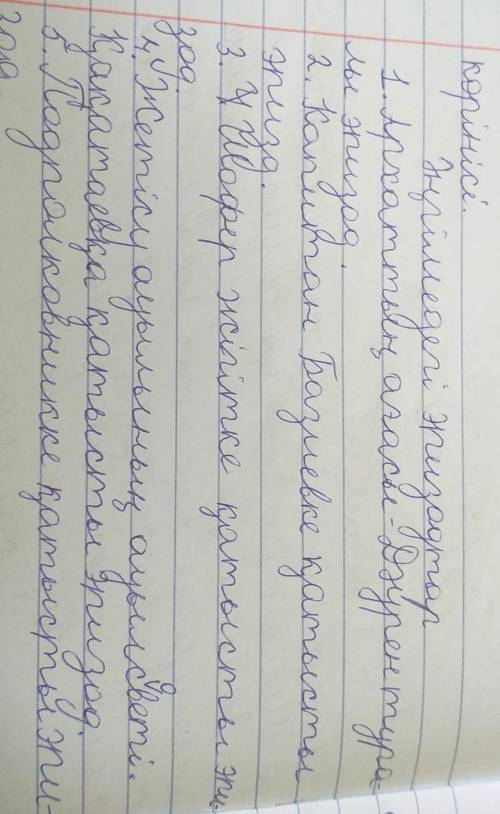 көрінісі.
Әңгімедегі эпизодтар
1. Архаттың ағасы - Джурен тура-
лы эпизод.
2. Капитан Базиевке қатысты
эпизд.
3. Шофер жігітке қатысты эпи-
зод.
4. Жетісу ауылының ауылсветі.
Қақатаевқа қатысты эпизод
5. Подполковникке қатысты эпи-
зод.